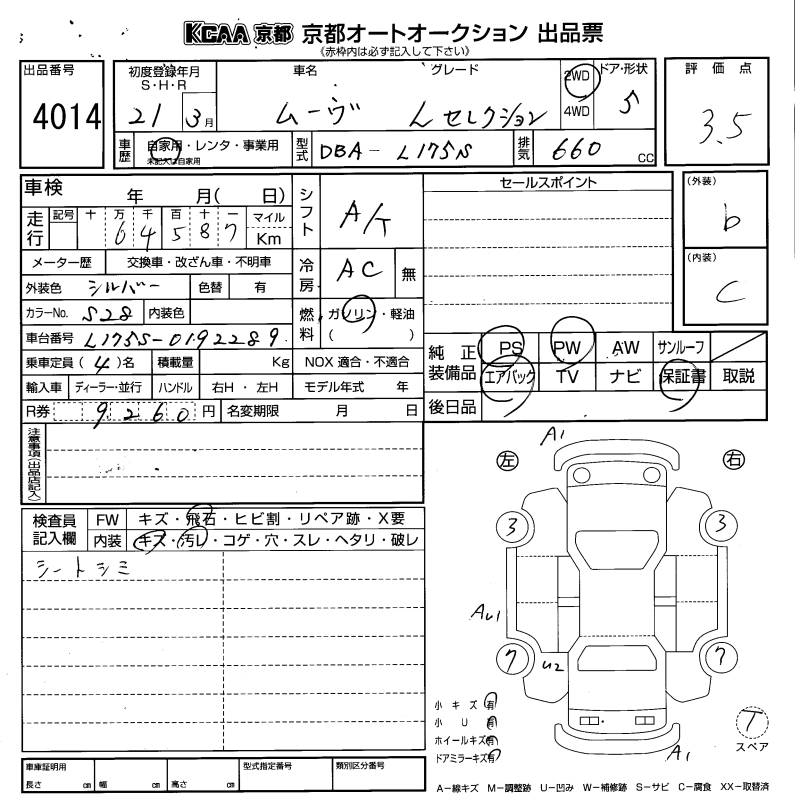 KCAA 京都 京都オートオークション 出品票
《赤枠内は必ず記入して下さい》
出品番号
4014
初度登録年月
S・H・R
21 3月
車名
グレード
ムーヴ Lセレクション
2WD
4WD
ドア・形状
5
評価点
3.5
車歴
自家用・レンタ・事業用
未記入は自家用
型式
DBA-L175S
排気
660 CC
車検
年 月( 日)
走行
記号 十 万 千 百 十 一 マイル
6 4 5 8 7 Km
シフト
A/T
セールスポイント
(外装)
b
(内装)
C
メーター歴
交換車・改ざん車・不明車
冷房
AC 無
外装色 シルバー 色替 有
カラーNo. S28 内装色
燃料
ガソリン・軽油
( )
車台番号 L175S-0192289
乗車定員(4)名 積載量 Kg NOX 適合・不適合
輸入車 ディーラー・並行 ハンドル 右H・左H モデル年式 年
R券 9260円 名変期限 月 日
純正装備品
PS PW AW サンルーフ
エアバック TV ナビ 保証書 取説
後日品
注意事項(出品店記入)
検査員記入欄
FW キズ・飛石・ヒビ割・リペア跡・X要
内装 キズ・汚レ・コゲ・穴・スレ・ヘタリ・破レ
シートシミ
左 右
A1
3 3
AU1
7 U2 7
A1
小キズ 有
小U 有
ホイールキズ 有
ドアミラーキズ 有
T
スペア
車庫証明用
長さ cm 幅 cm 高さ cm
型式指定番号
類別区分番号
A−線キズ M−調整跡 U−凹み W−補修跡 S−サビ C−腐食 XX−取替済